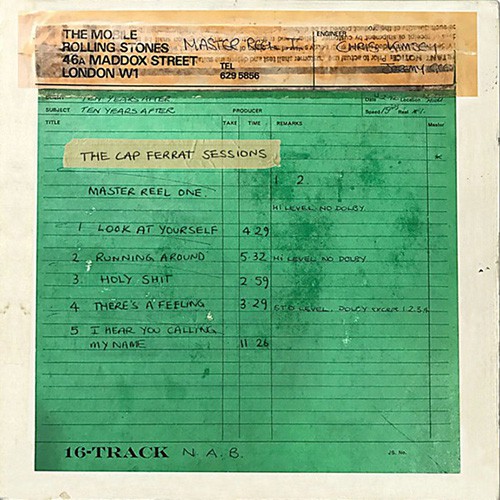 THE MOBILE
ROLLING STONES
46A MADDOX STREET
LONDON W1
TEL
629 5856
MASTER REEL II
ENGINEER
CHRIS KIMSEY
TEN YEARS AFTER
SUBJECT TEN YEARS AFTER PRODUCER
Date Location
Speed 15 Reel
TITLE TAKE TIME REMARKS Master
THE CAP FERRAT SESSIONS
MASTER REEL ONE. 1 2
HI LEVEL NO DOLBY.
1 LOOK AT YOURSELF 4 29
2 RUNNING AROUND 5 32 HI LEVEL NO DOLBY
3. HOLY SHIT 2 59
4 THERE'S A FEELING 3 29 STD LEVEL. DOLBY 1.2.3.4.
5 I HEAR YOU CALLING
MY NAME 11 26
16-TRACK N.A.B. JS. No.